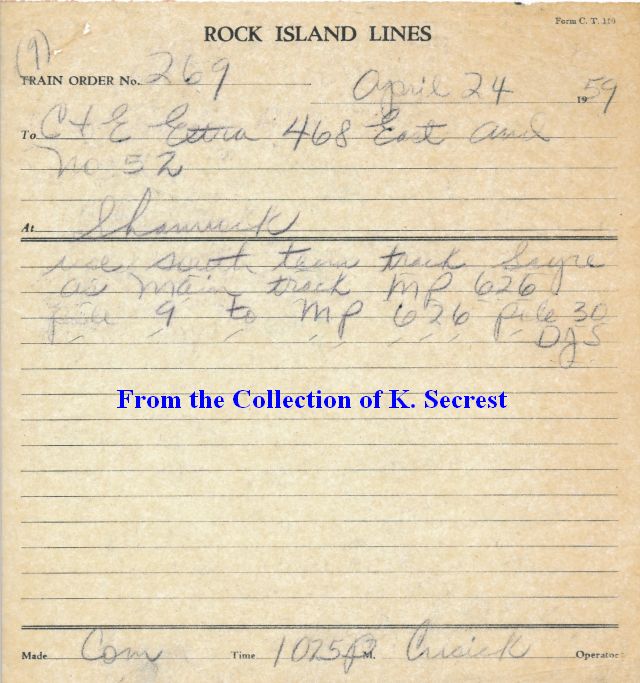 Form C. T. 110
ROCK ISLAND LINES
(9)
TRAIN ORDER No. 269
April 24 1959
To C+E Extra 468 East and
No 52
At Shamrock
use south team track Sayre
as main track MP 626
pole 9 to MP 626 pole 30
DJS
From the Collection of K. Secrest
Made Com Time 1025 P M. Cusick Operator